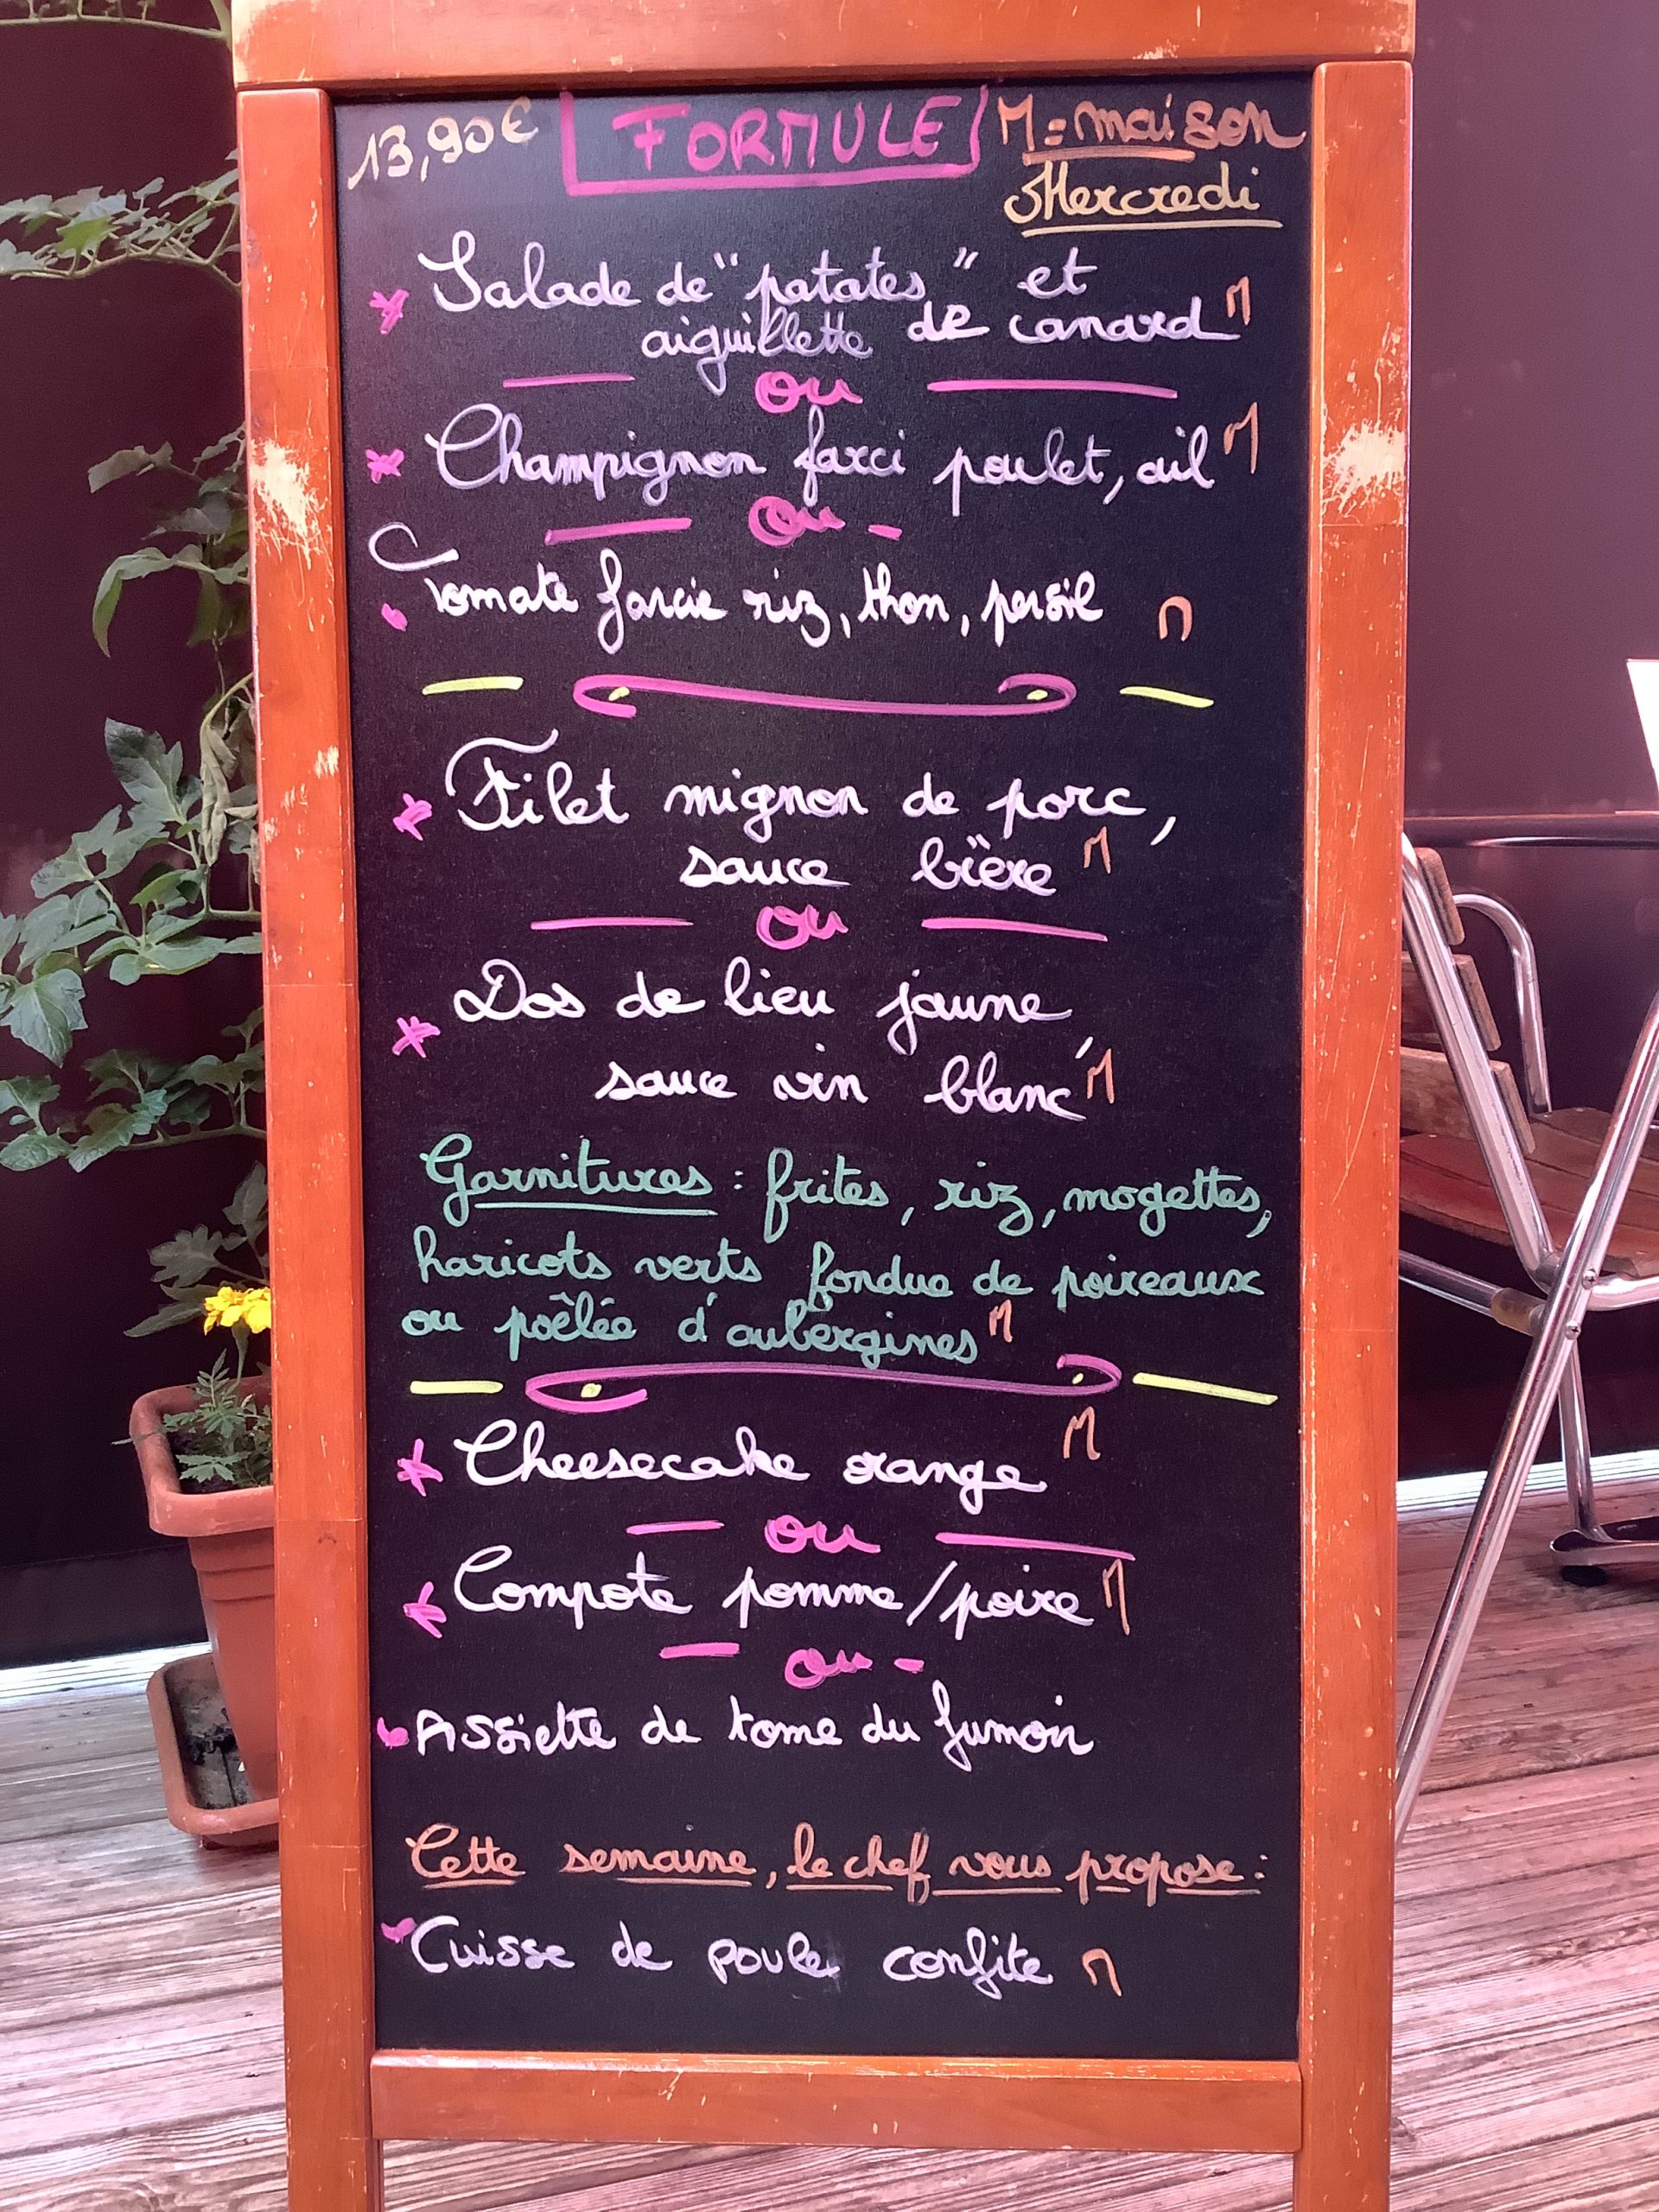 13,90€ FORMULE M = maison
Mercredi
Salade de "patates" et
aiguillette de canard M
ou
Champignon farci poulet, ail M
ou
Tomate farcie riz, thon, persil M
Filet mignon de porc,
sauce bière M
ou
Dos de lieu jaune,
sauce vin blanc M
Garnitures : frites, riz, mogettes,
haricots verts, fondue de poireaux
ou poêlée d'aubergines M
Cheesecake orange M
ou
Compote pomme/poire M
ou
Assiette de tome du fumoir
Cette semaine, le chef vous propose :
Cuisse de poule confite M